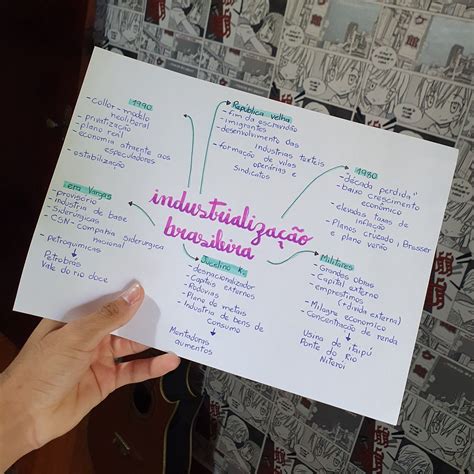 1990
- collor - modelo
neoliberal
- privatização
- plano real
- economia atraente aos
especuladores
- estabilização
República velha
- fim da escravidão
- imigrantes
- desenvolvimento das
industrias texteis
- formação de vilas
operárias e
Sindicatos
1980
- "década perdida"
- baixo crescimento
econômico
- elevadas taxas de
inflação
- Planos cruzado, Bresser
e plano verão
era Vargas
- provisorio
- industria de base
- Siderúrgicas
- CSN - Companhia Siderúrgica
nacional
- petroquimicas
Petrobras
Vale do rio doce
industrialização
brasileira
Juscelino K
- desnacionalizador
- Capitais externos
- Rodovias
- Plano de metas
- Industria de bens de
Consumo
Montadoras
alimentos
Militares
- Grandes obras
- capital externo
- emprestimos
(+ divida externa)
- Milagre econômico
- Concentração de renda
Usina de itaipú
Ponte do Rio
Niteroi